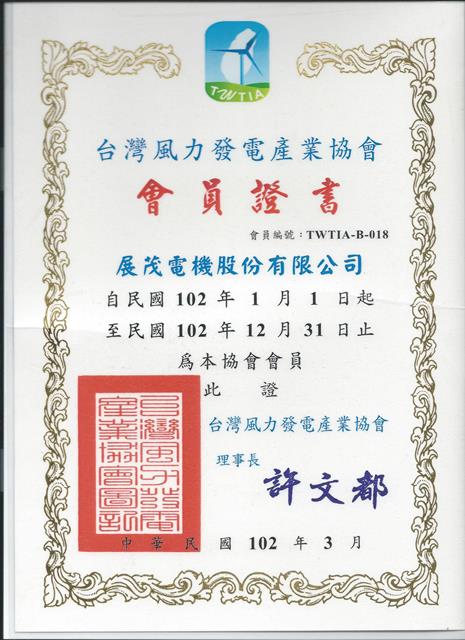 TWTIA
台灣風力發電產業協會
會員證書
會員編號：TWTIA-B-018
展茂電機股份有限公司
自民國 102 年 1 月 1 日起
至民國 102 年 12 月 31 日止
為本協會會員
此 證
台灣風力發電產業協會
理事長
許文都
台灣風力發電
產業協會圖記
中 華 民 國 102 年 3 月